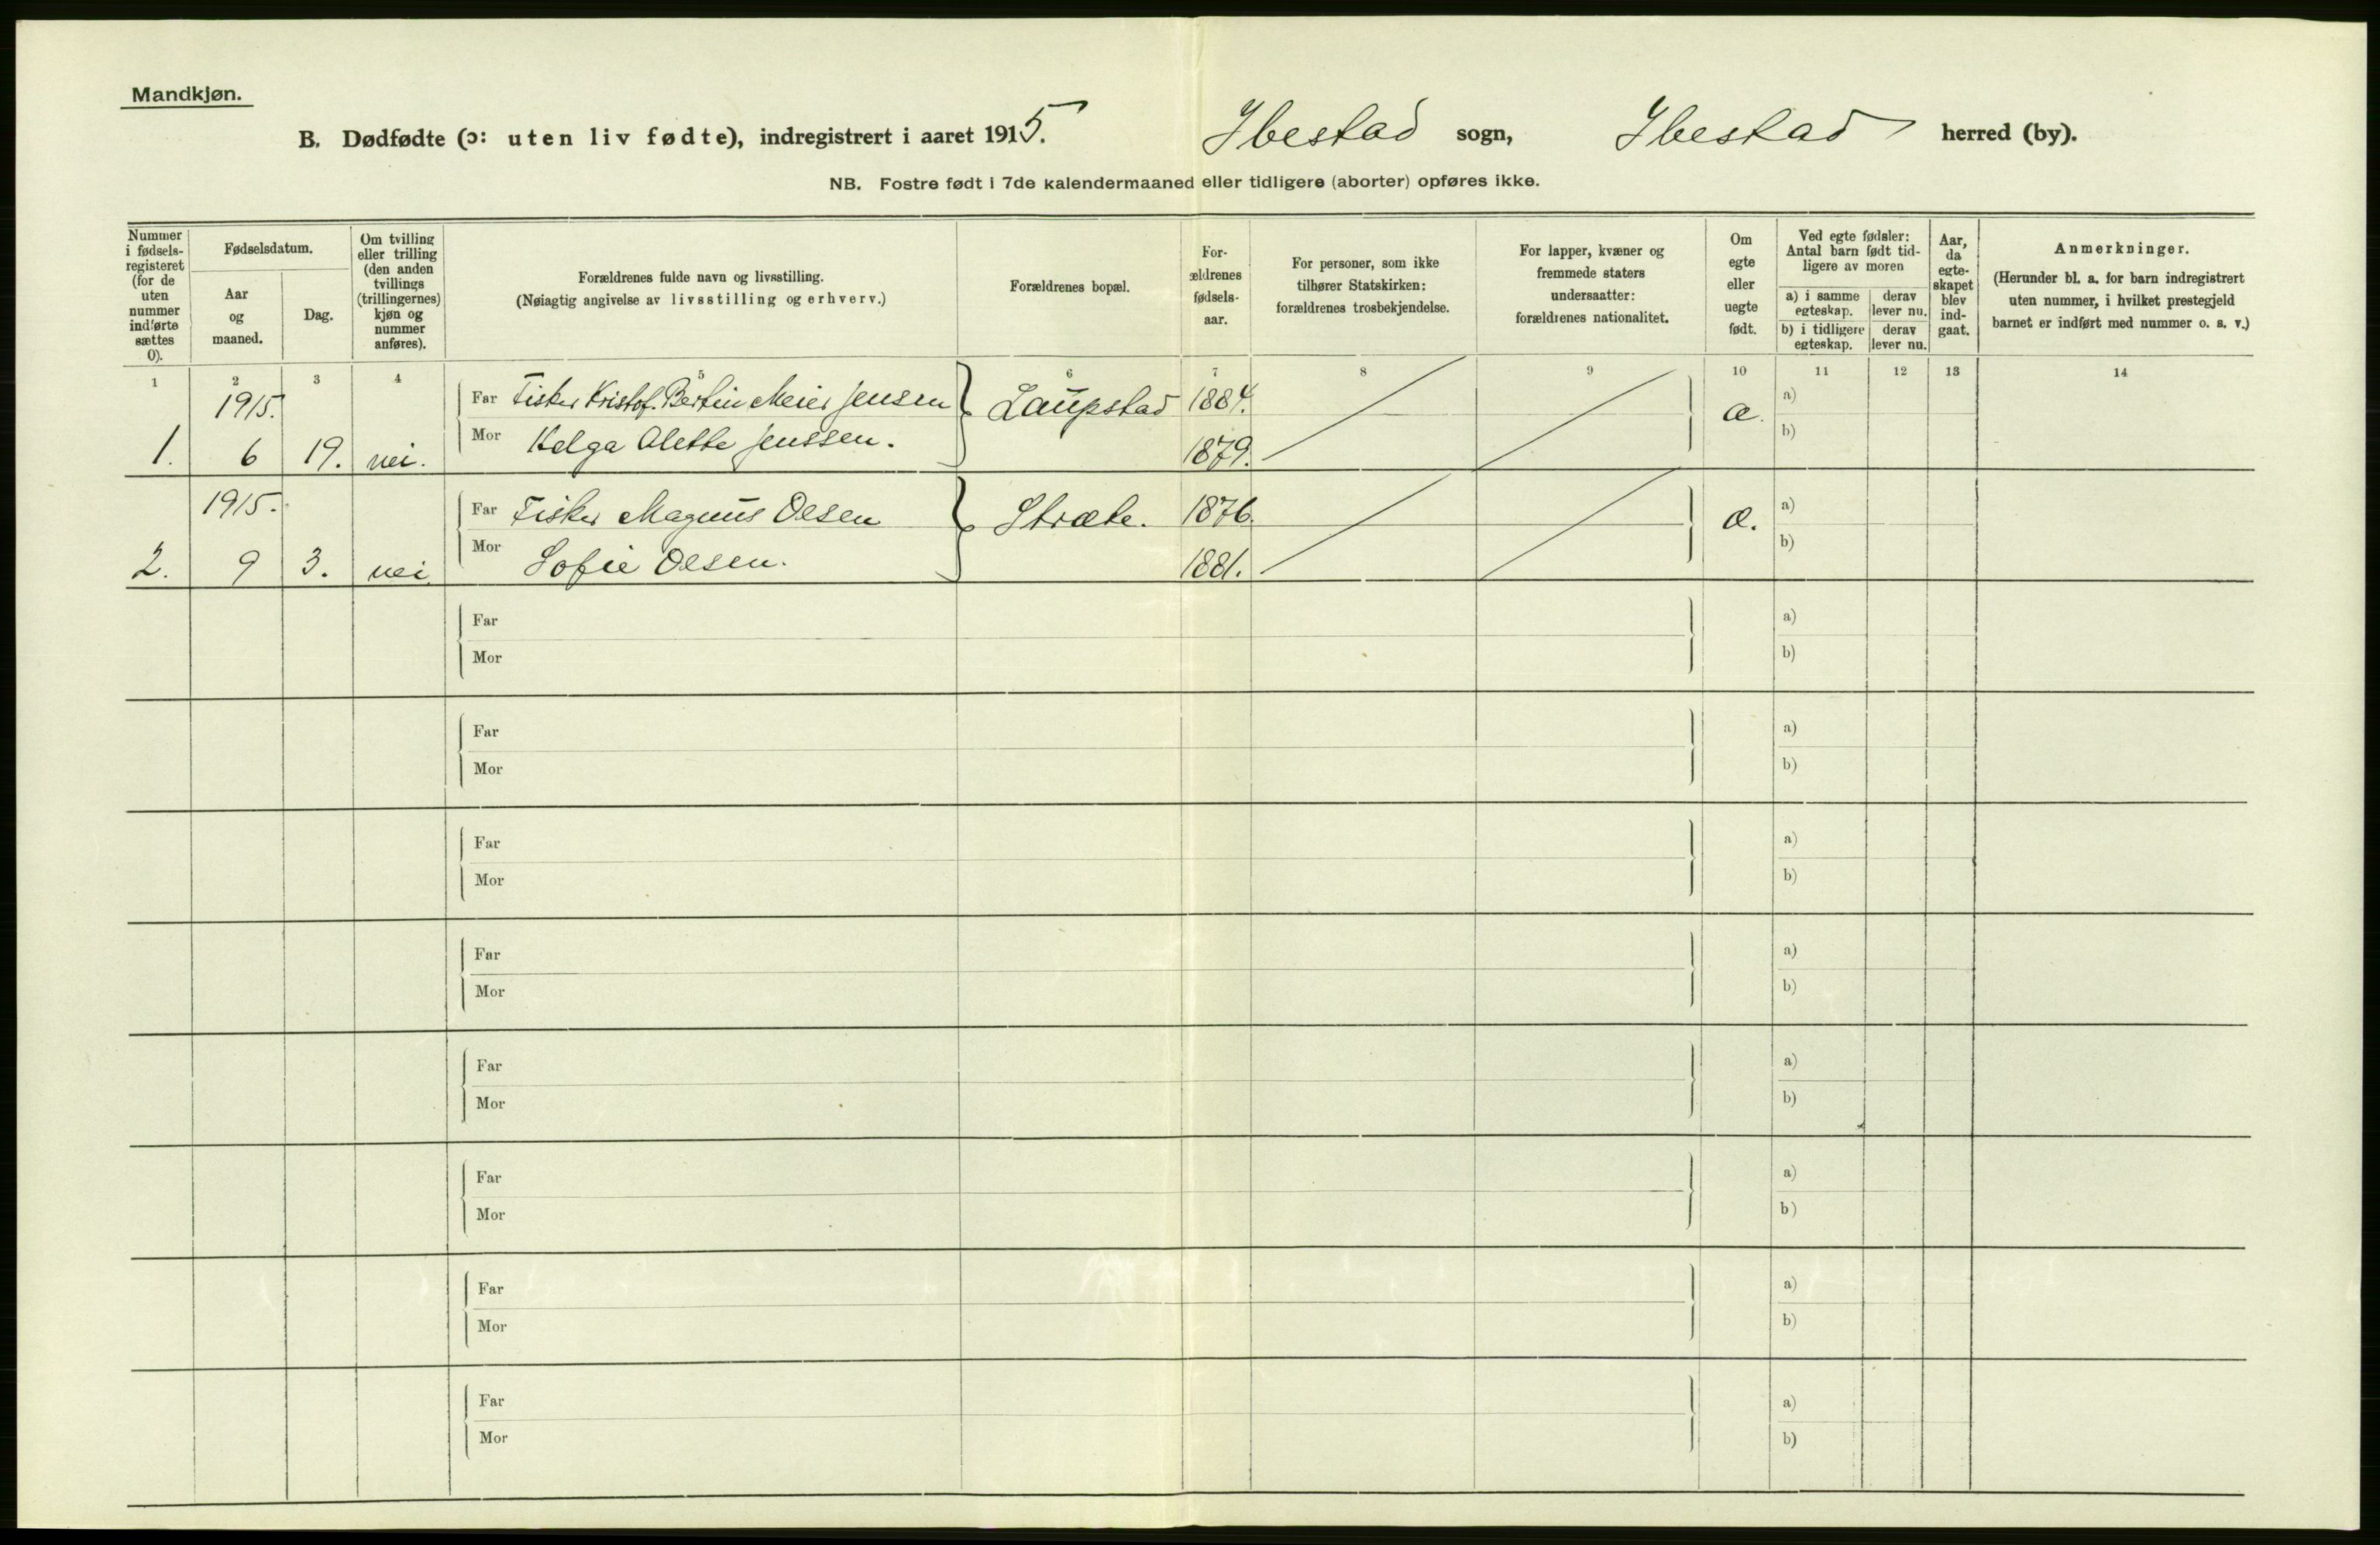 Mandkjøn.
B. Dødfødte (ɔ: uten liv fødte), indregistrert i aaret 1915. Ibestad sogn, Ibestad herred (by).
NB. Fostre født i 7de kalendermaaned eller tidligere (aborter) opføres ikke.
Nummer i fødsels-registeret (for de uten nummer indførte sættes 0).
Fødselsdatum.
Aar og maaned.
Dag.
Om tvilling eller trilling (den anden tvillings (trillingernes) kjøn og nummer anføres).
Forældrenes fulde navn og livsstilling.
(Nøiagtig angivelse av livsstilling og erhverv.)
Forældrenes bopæl.
For-ældrenes fødsels-aar.
For personer, som ikke tilhører Statskirken: forældrenes trosbekjendelse.
For lapper, kvæner og fremmede staters undersaatter: forældrenes nationalitet.
Om egte eller uegte født.
Ved egte fødsler: Antal barn født tid-ligere av moren
a) i samme egteskap.
derav lever nu.
b) i tidligere egteskap.
derav lever nu.
Aar, da egte-skapet blev ind-gaat.
Anmerkninger.
(Herunder bl. a. for barn indregistrert uten nummer, i hvilket prestegjeld barnet er indført med nummer o. s. v.)
1 2 3 4 5 6 7 8 9 10 11 12 13 14
1915. Far Fisker Kristof. Bertin Meier Jensen Laupstad 1884. æ. a)
1. 6 19. nei. Mor Helga Alette Jenssen. 1879. b)
1915. Far Fisker Magnus Olsen Stræte. 1876. æ. a)
2. 9 3. nei Mor Sofie Olsen. 1881. b)
Far a)
Mor b)
Far a)
Mor b)
Far a)
Mor b)
Far a)
Mor b)
Far a)
Mor b)
Far a)
Mor b)
Far a)
Mor b)
Far a)
Mor b)